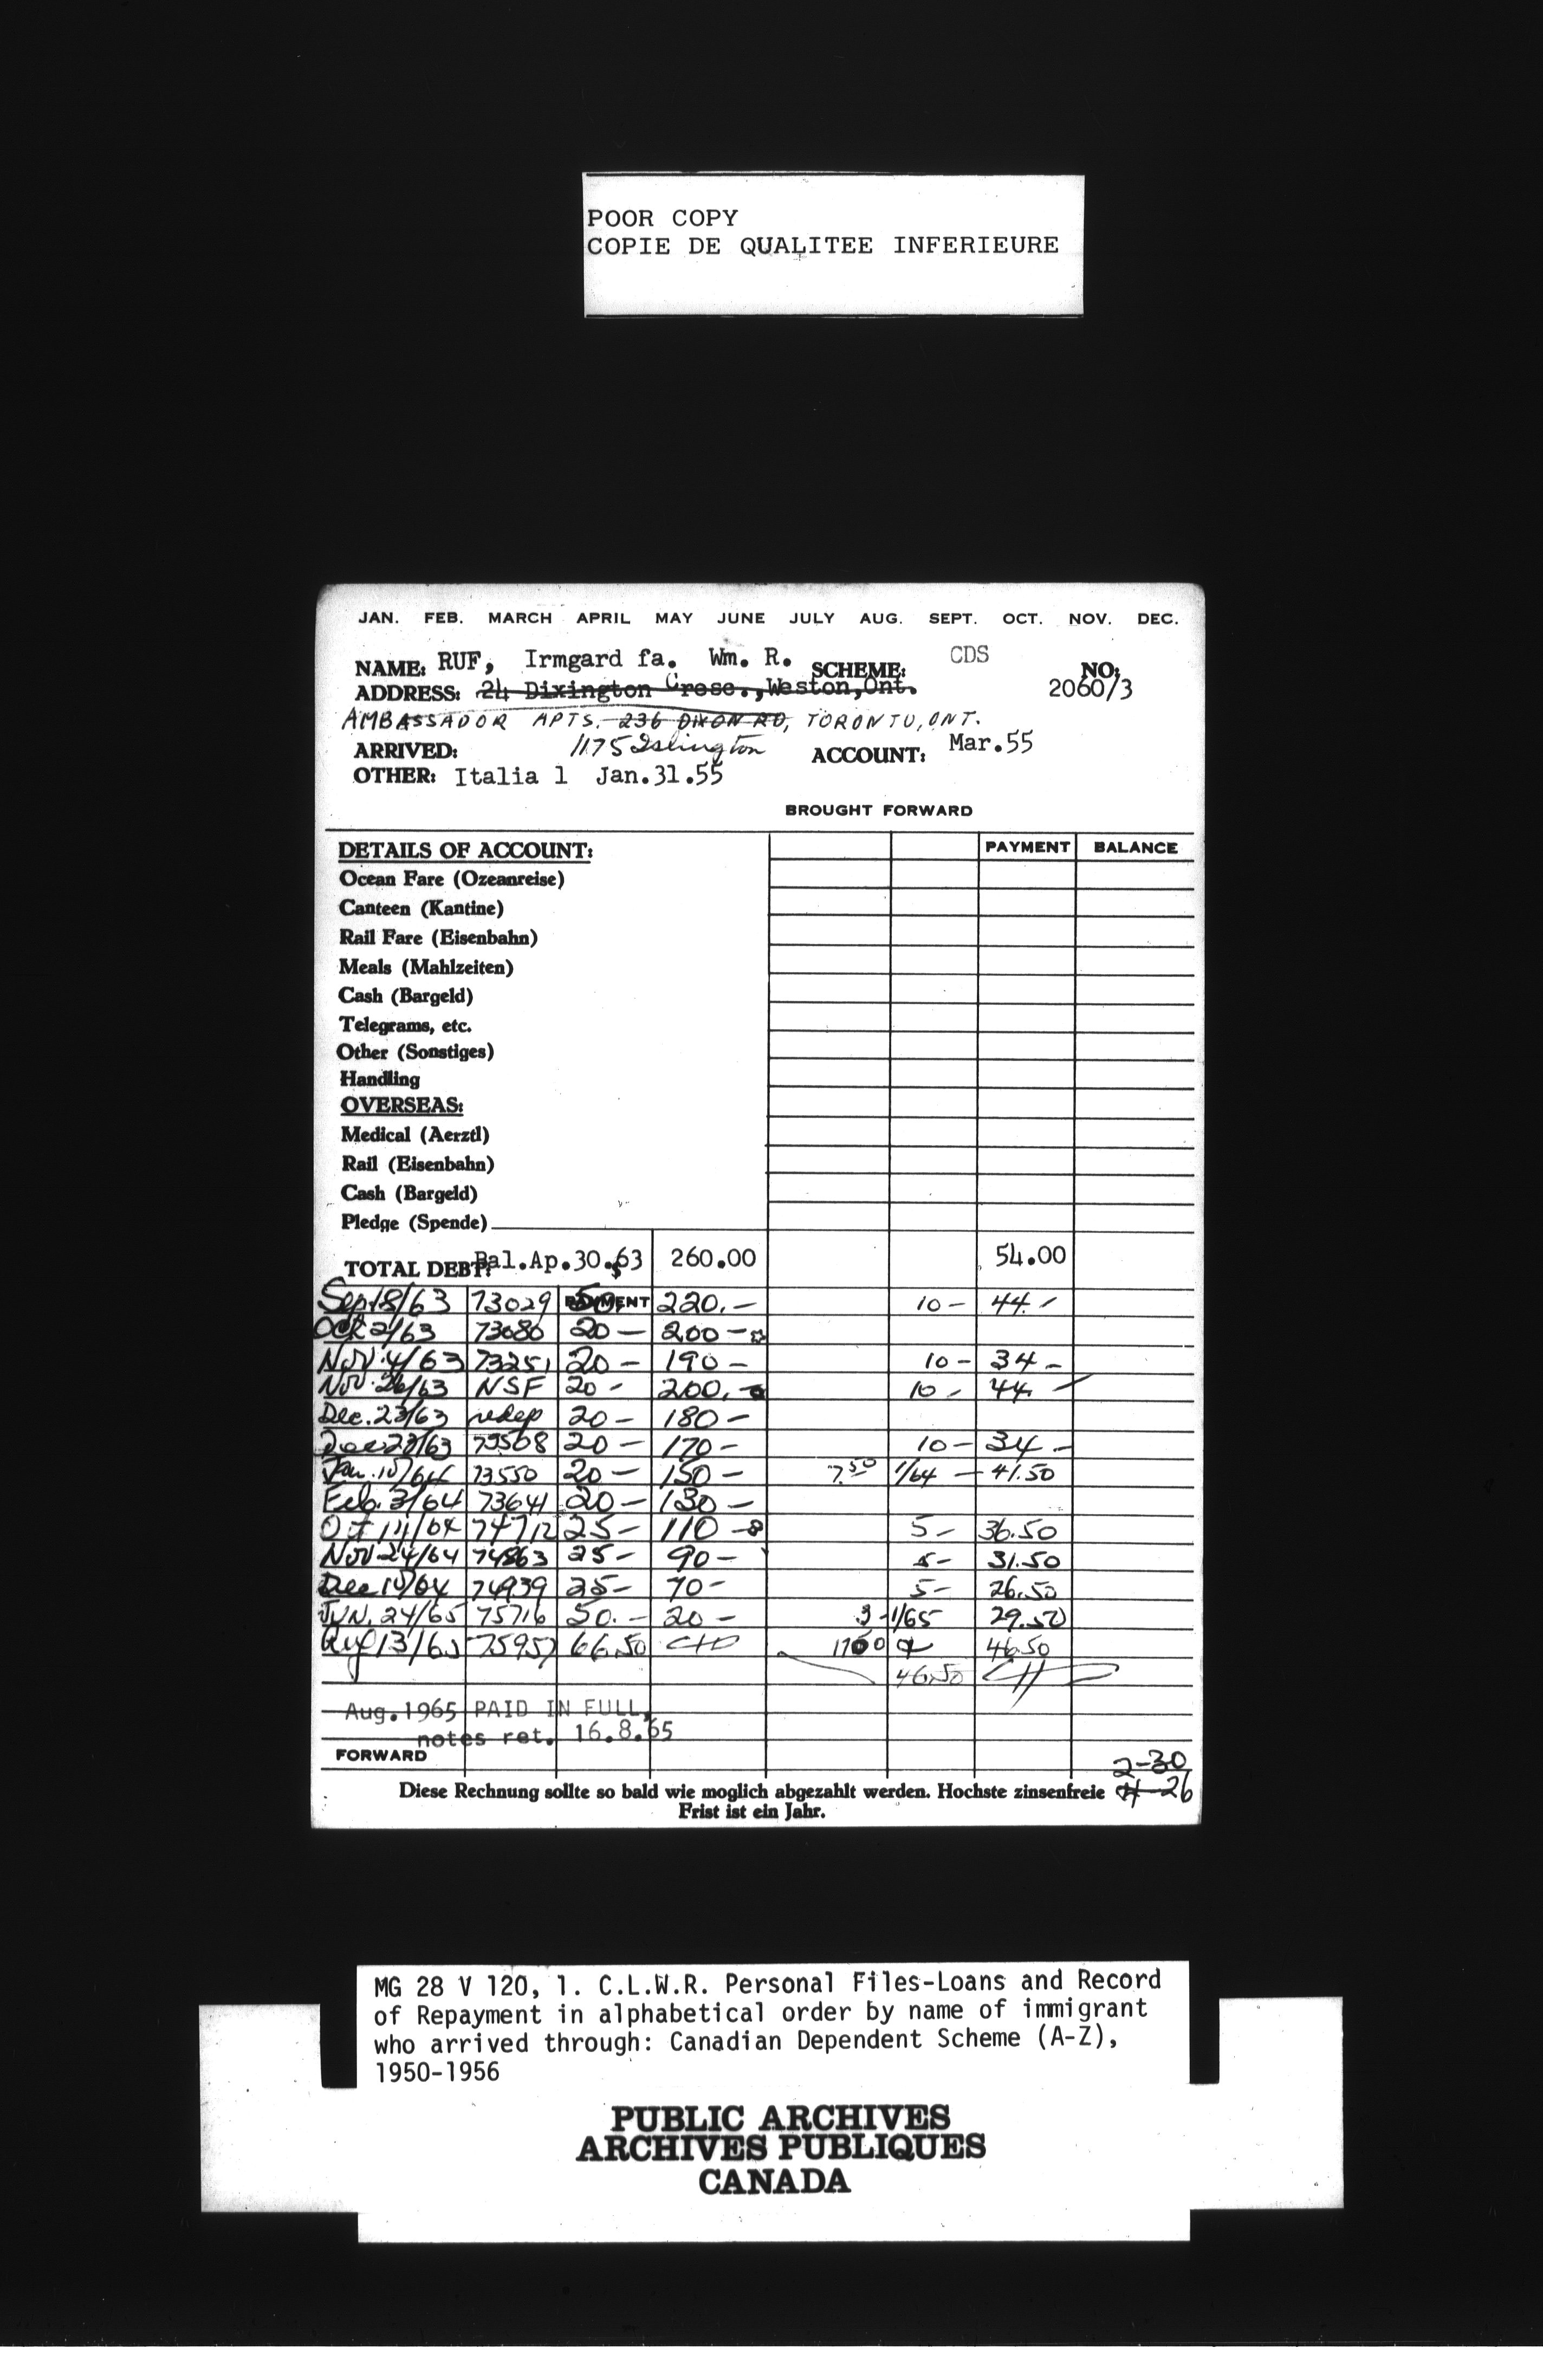 POOR COPY
COPIE DE QUALITEE INFERIEURE
JAN. FEB. MARCH APRIL MAY JUNE JULY AUG. SEPT. OCT. NOV. DEC.
NAME: RUF, Irmgard fa. Wm. R. SCHEME: CDS NO:
ADDRESS: 24 Dixington Cresc., Weston, Ont. 2060/3
AMBASSADOR APTS. 236 DIXON RD, TORONTO, ONT.
ARRIVED: 1175 Islington ACCOUNT: Mar.55
OTHER: Italia 1 Jan.31.55
BROUGHT FORWARD
DETAILS OF ACCOUNT: PAYMENT BALANCE
Ocean Fare (Ozeanreise)
Canteen (Kantine)
Rail Fare (Eisenbahn)
Meals (Mahlzeiten)
Cash (Bargeld)
Telegrams, etc.
Other (Sonstiges)
Handling
OVERSEAS:
Medical (Aerztl)
Rail (Eisenbahn)
Cash (Bargeld)
Pledge (Spende)
TOTAL DEBT: Bal.Ap.30.63 $ 260.00 54.00
Sep 18/63 73029 PAYMENT 50. 220.- 10- 44.-
Oct 2/63 73080 20- 200-
Nov. 4/63 73251 20- 190- 10- 34-
Nov. 26/63 NSF 20- 200.- 10- 44.-
Dec. 23/63 redep 20- 180-
Dec 28/63 73508 20- 170- 10- 34-
Jan. 10/64 73550 20- 150- 7.50 1/64 - 41.50
Feb. 3/64 73641 20- 130-
Oct 14/64 74712 25- 110- 5- 36.50
Nov 24/64 74863 25- 90- 5- 31.50
Dec 10/64 74939 25- 70- 5- 26.50
JUN. 24/65 75716 50.- 20- 3- 1/65 29.50
Aug 13/65 75957 66.50 1700 46.50
46.50
Aug.1965 PAID IN FULL,
notes ret. 16.8.65
FORWARD 2-30
Diese Rechnung sollte so bald wie moglich abgezahlt werden. Hochste zinsenfreie 4-26
Frist ist ein Jahr.
MG 28 V 120, 1. C.L.W.R. Personal Files-Loans and Record
of Repayment in alphabetical order by name of immigrant
who arrived through: Canadian Dependent Scheme (A-Z),
1950-1956
PUBLIC ARCHIVES
ARCHIVES PUBLIQUES
CANADA